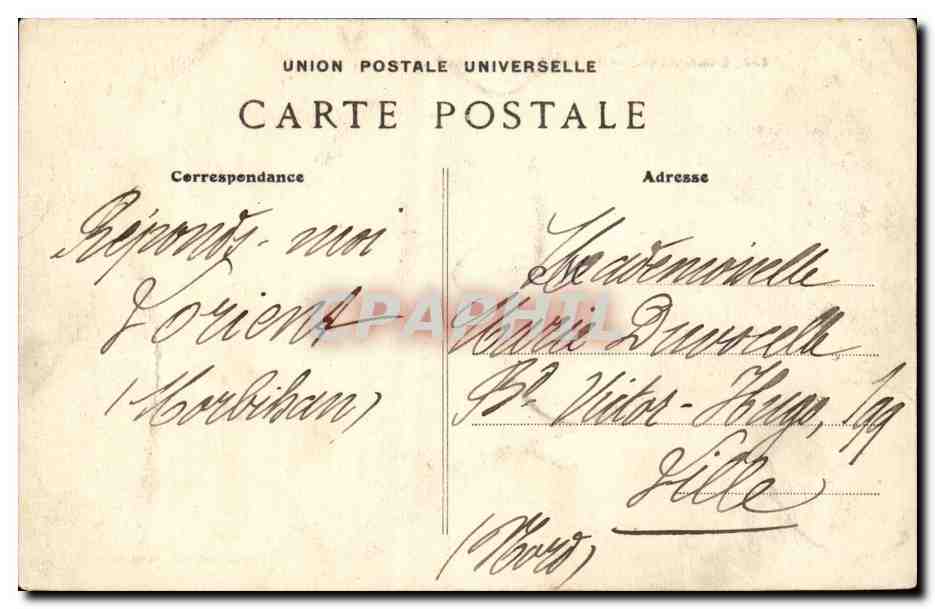 UNION POSTALE UNIVERSELLE
CARTE POSTALE
Correspondance
Réponds-moi
Lorient
(Morbihan)
Adresse
Mademoiselle
Marie Duvocelle
Bd Victor-Hugo, 199
Lille
(Nord)
CPAPHIL